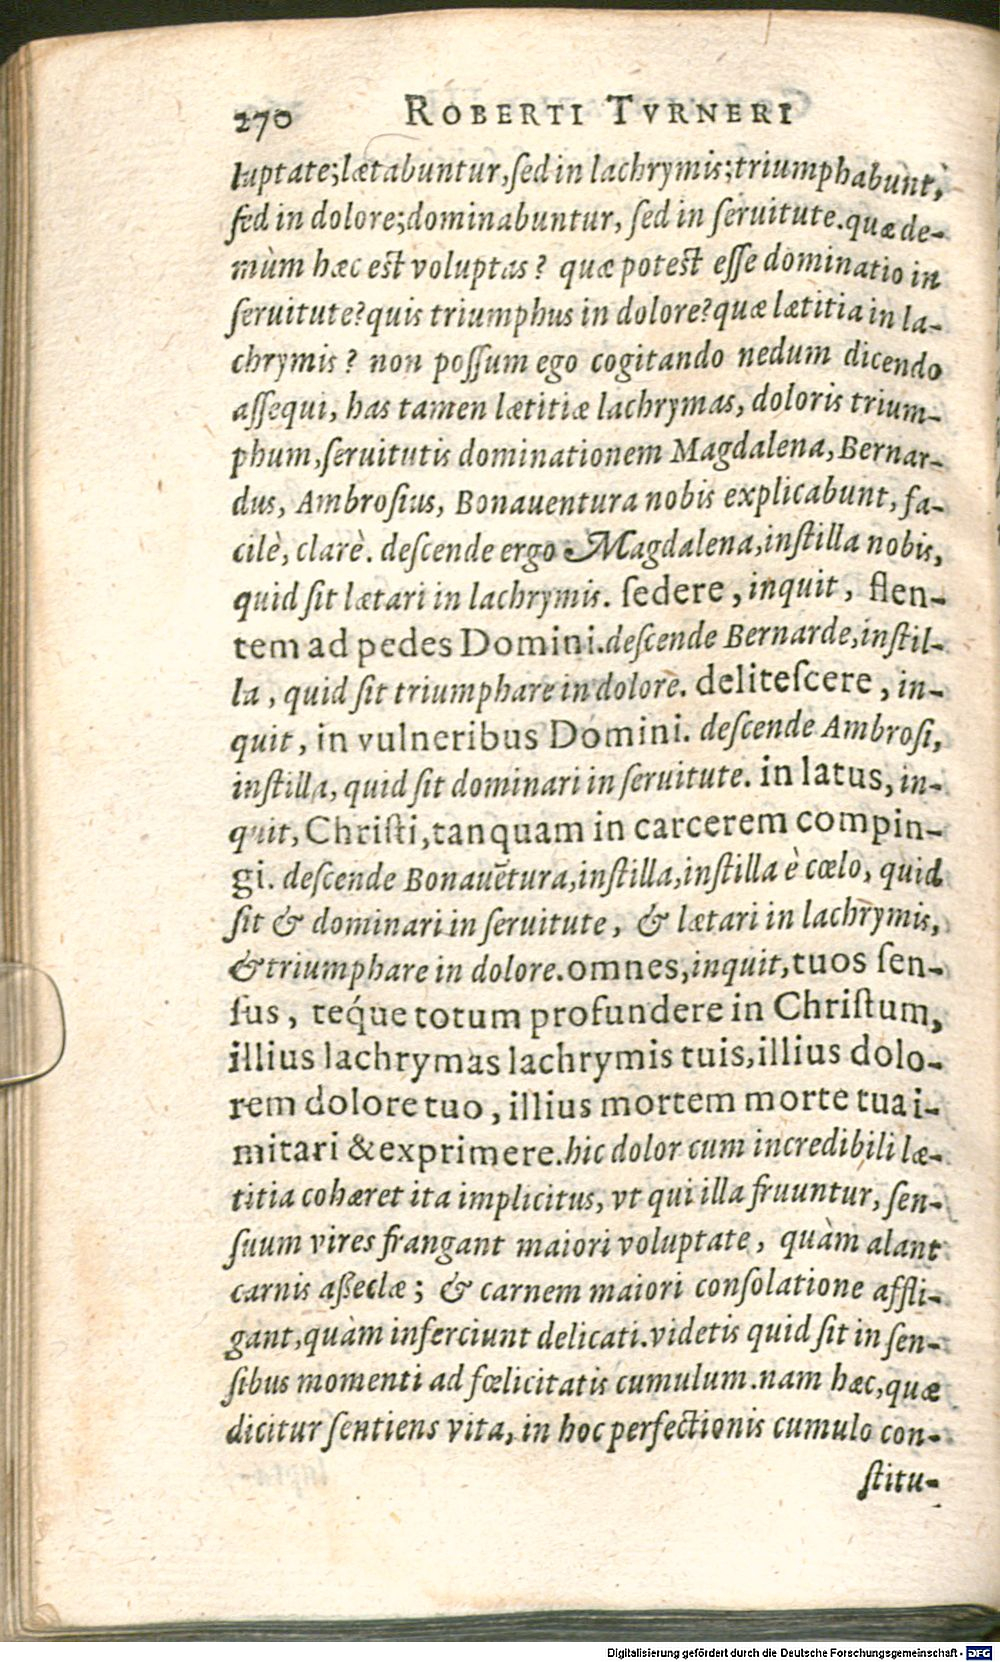 270 ROBERTI TVRNERI
luptate; lætabuntur, ſed in lachrymis; triumphabunt,
ſed in dolore; dominabuntur, ſed in ſeruitute. quæ de-
mùm hæc est voluptas? quæ potest eſſe dominatio in
ſeruitute? quis triumphus in dolore? quæ lætitia in la-
chrymis? non poſſum ego cogitando nedum dicendo
aſſequi, has tamen lætitiæ lachrymas, doloris trium-
phum, ſeruitutis dominationem Magdalena, Bernar-
dus, Ambroſius, Bonauentura nobis explicabunt, fa-
cilè, clarè. deſcende ergo Magdalena, inſtilla nobis,
quid ſit lætari in lachrymis. ſedere, inquit, flen-
tem ad pedes Domini. deſcende Bernarde, inſtil-
la, quid ſit triumphare in dolore. deliteſcere, in-
quit, in vulneribus Domini. deſcende Ambroſi,
inſtilla, quid ſit dominari in ſeruitute. in latus, in-
quit, Chriſti, tanquam in carcerem compin-
gi. deſcende Bonauētura, inſtilla, inſtilla è cœlo, quid
ſit & dominari in ſeruitute, & lætari in lachrymis,
& triumphare in dolore. omnes, inquit, tuos ſen-
ſus, teq́ue totum profundere in Chriſtum,
illius lachrymas lachrymis tuis, illius dolo-
rem dolore tuo, illius mortem morte tua i-
mitari & exprimere. hic dolor cum incredibili læ-
titia cohæret ita implicitus, vt qui illa fruuntur, ſen-
ſuum vires frangant maiori voluptate, quàm alant
carnis aßeclæ; & carnem maiori conſolatione affli-
gant, quàm inferciunt delicati. videtis quid ſit in ſen-
ſibus momenti ad fœlicitatis cumulum. nam hæc, quæ
dicitur ſentiens vita, in hoc perfectionis cumulo con-
ſtitu-
Digitalisierung gefördert durch die Deutsche Forschungsgemeinschaft - DFG